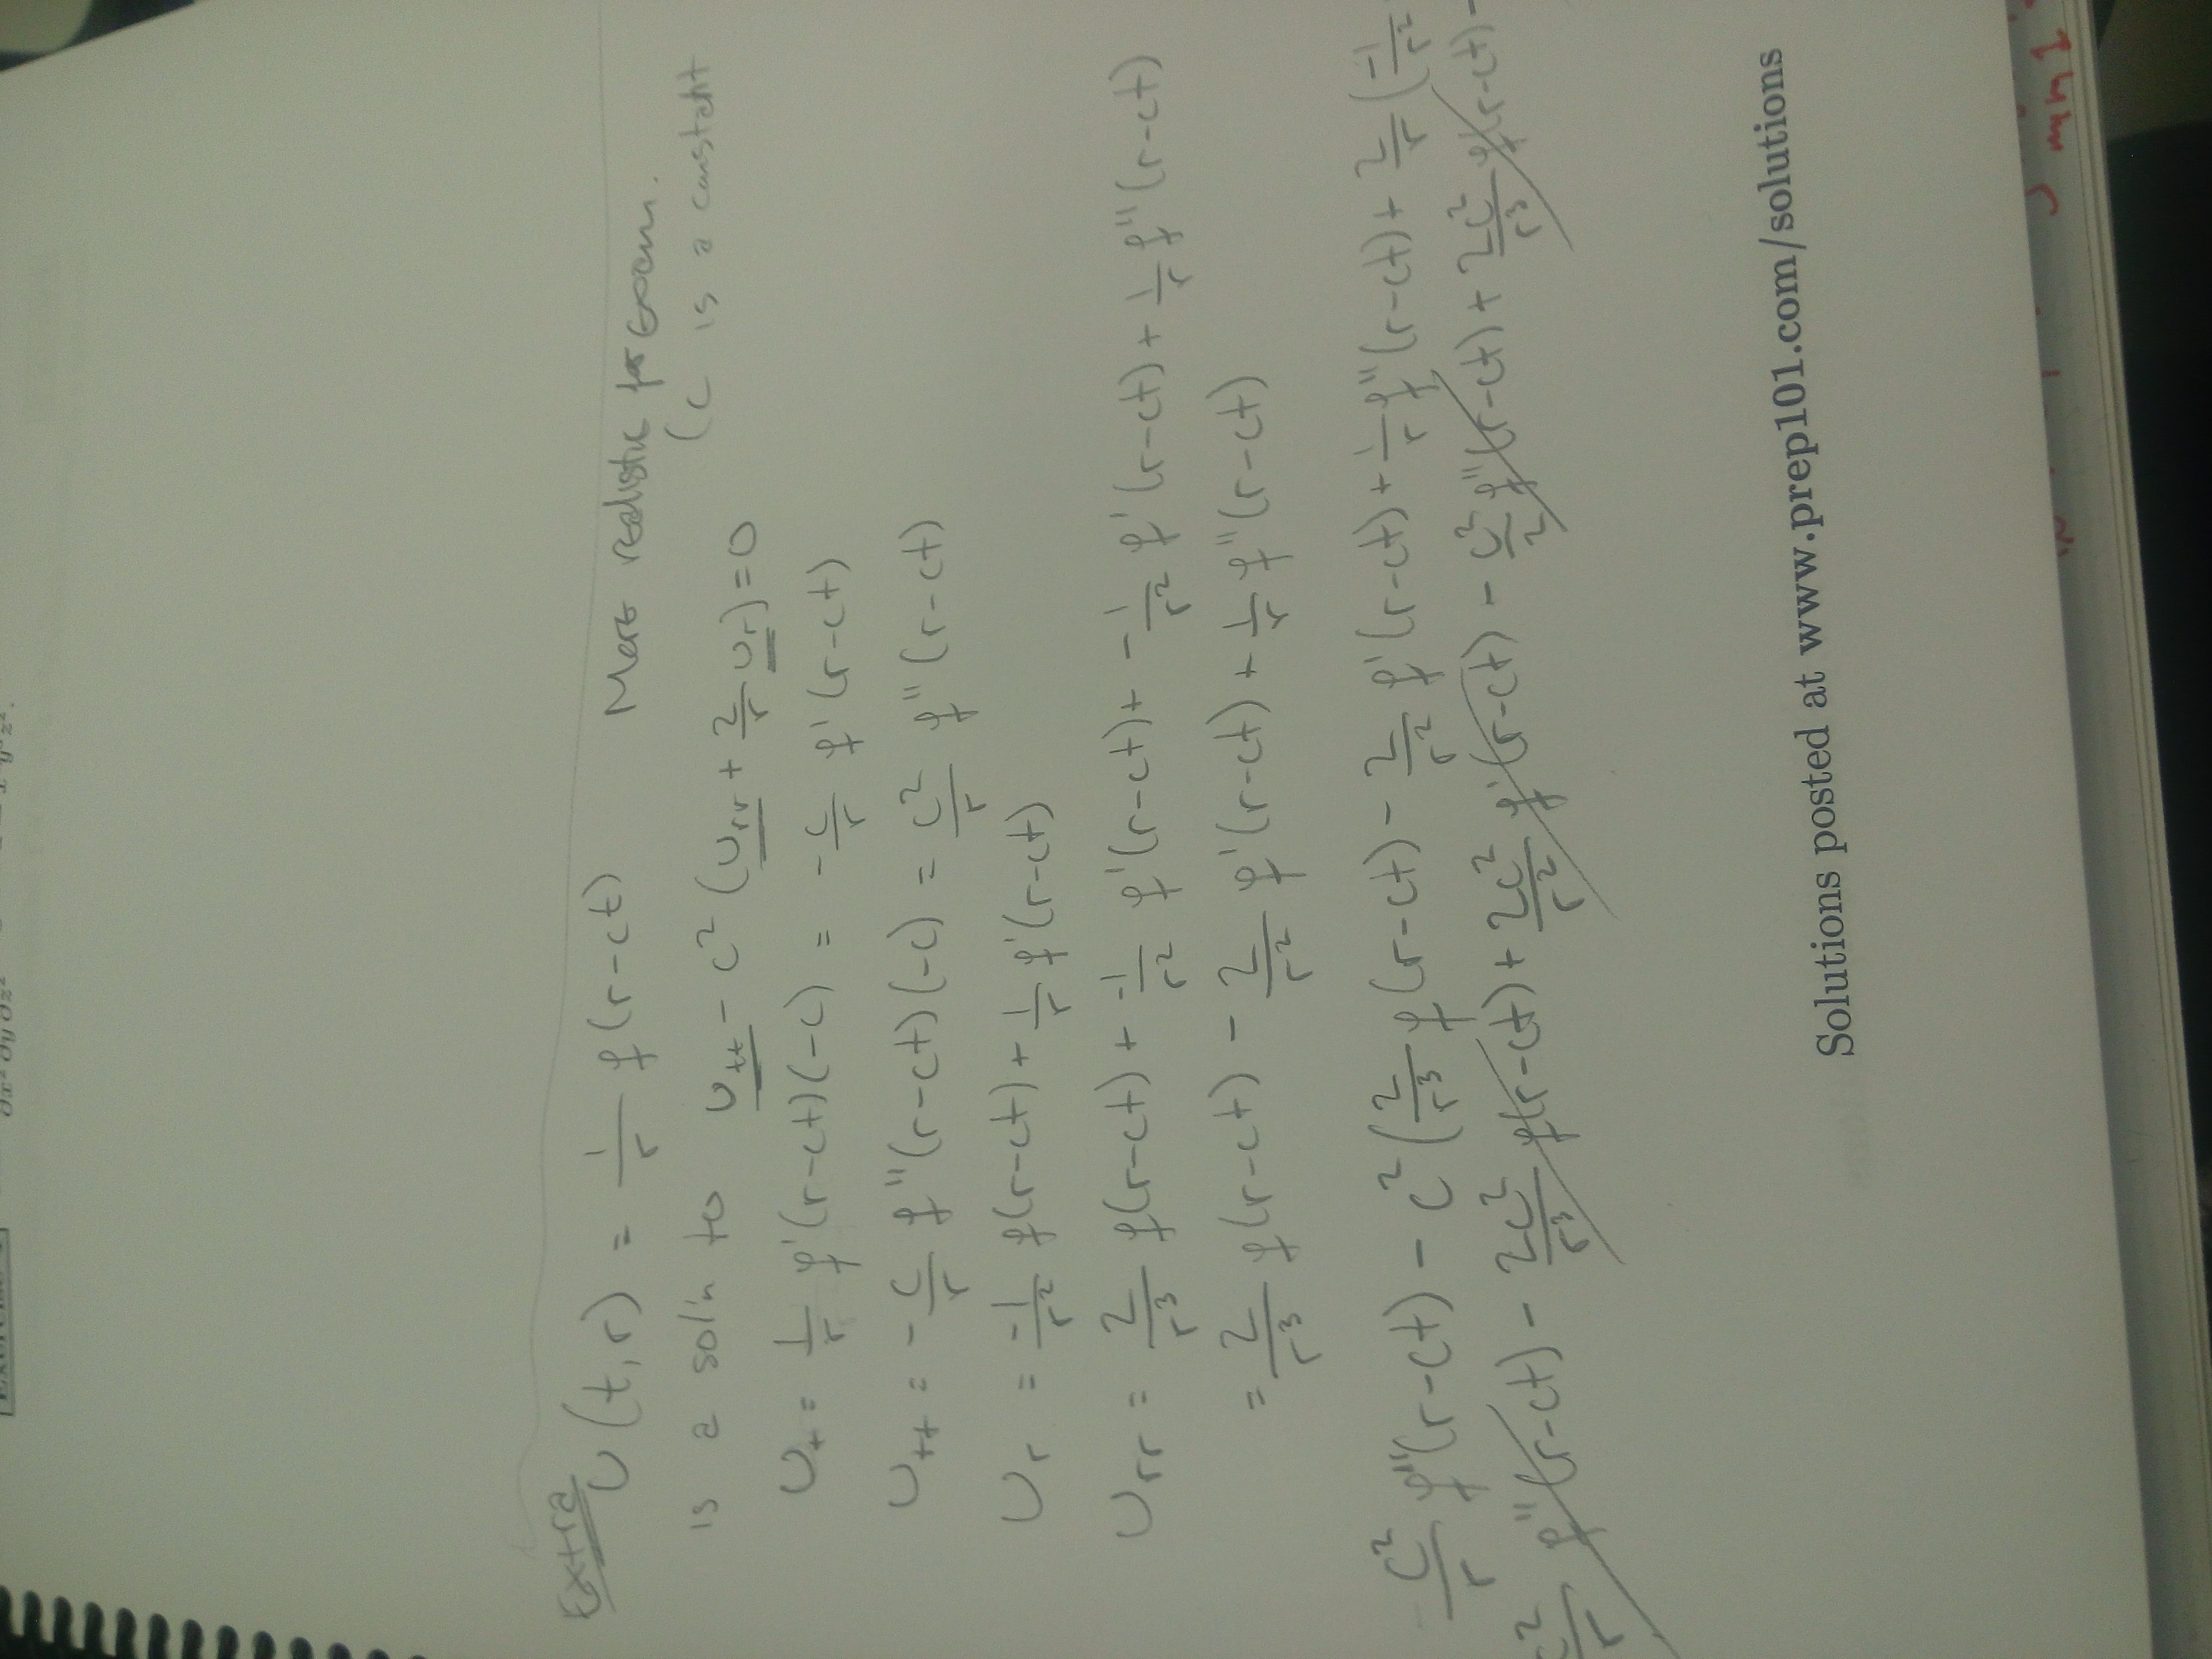 Extra
U(t,r) = 1/r f(r-ct)    More realistic for exam.
is a sol'n to    U_tt - c² (U_rr + 2/r U_r) = 0    (c is a constant
U_t = 1/r f'(r-ct)(-c) = - c/r f'(r-ct)
U_tt = - c/r f''(r-ct)(-c) = c²/r f''(r-ct)
U_r = -1/r² f(r-ct) + 1/r f'(r-ct)
U_rr = 2/r³ f(r-ct) + -1/r² f'(r-ct) + -1/r² f'(r-ct) + 1/r f''(r-ct)
= 2/r³ f(r-ct) - 2/r² f'(r-ct) + 1/r f''(r-ct)
c²/r f''(r-ct) - c² (2/r³ f(r-ct) - 2/r² f'(r-ct) + 1/r f''(r-ct) + 2/r (-1/r²
c²/r f''(r-ct) - 2c²/r³ f(r-ct) + 2c²/r² f'(r-ct) - c²/2 f''(r-ct) + 2c²/r³ f(r-ct) -
Solutions posted at www.prep101.com/solutions